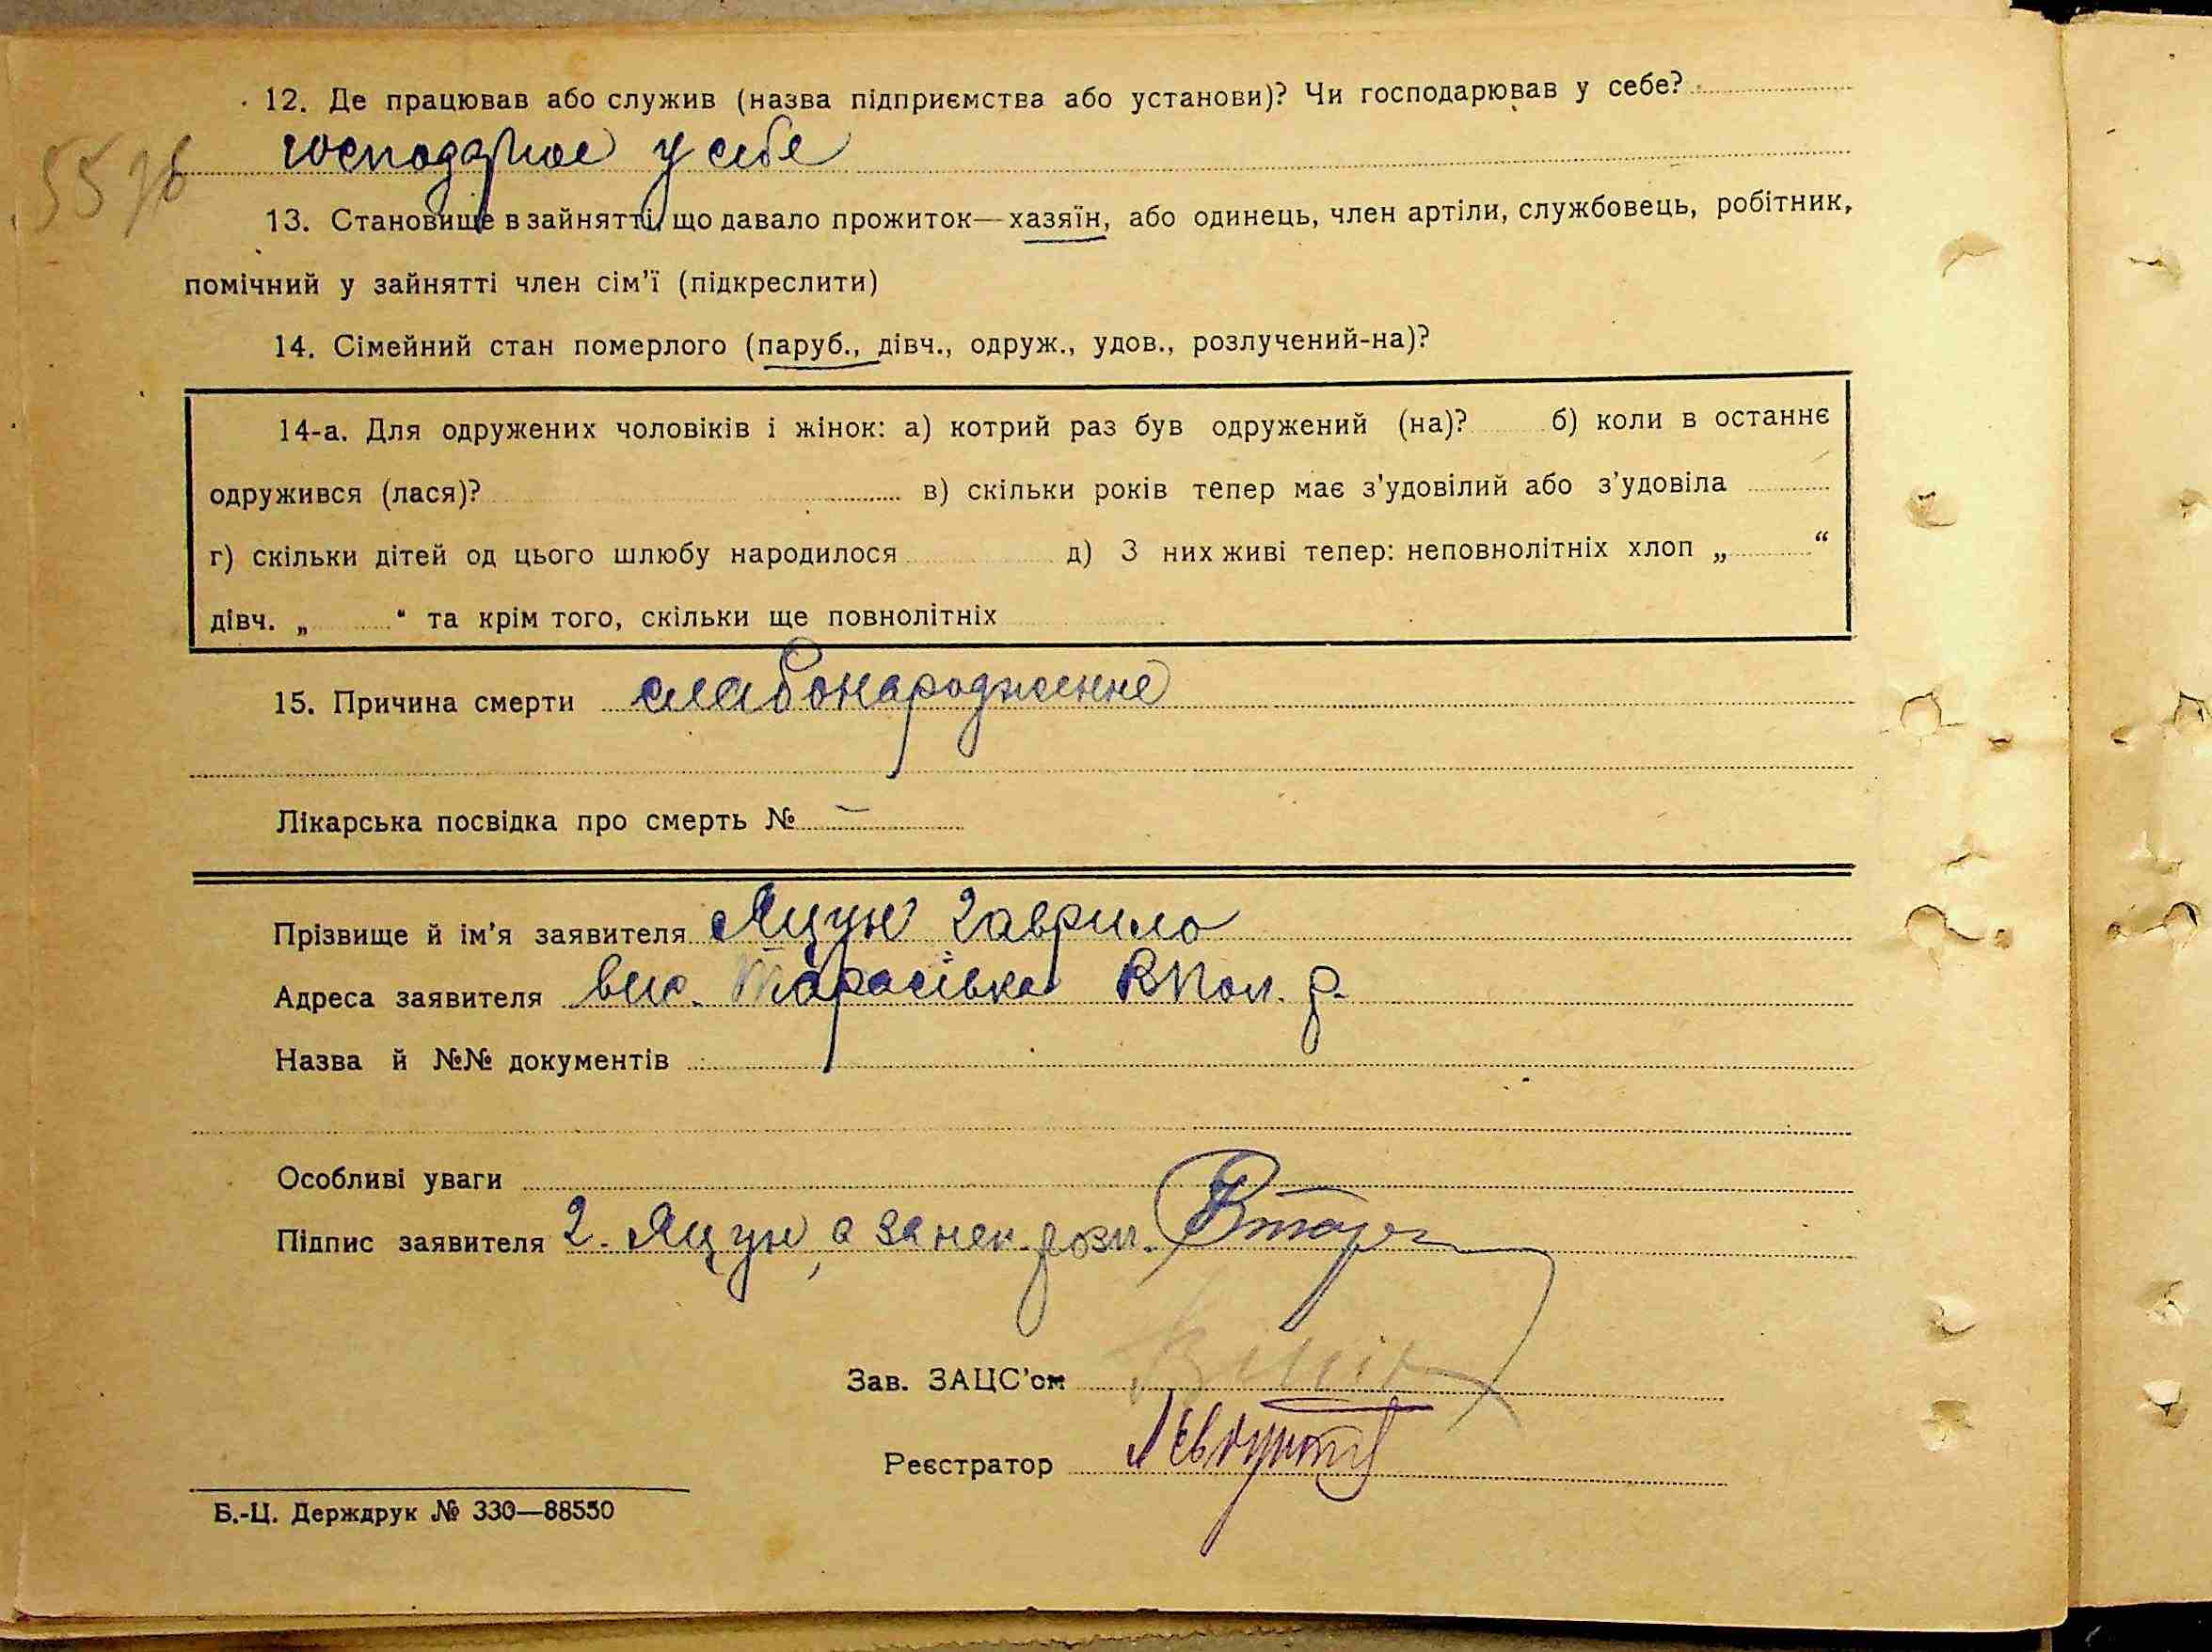 12. Де працював або служив (назва підприємства або установи)? Чи господарював у себе?
господарює у себе
55 зв
13. Становище в зайнятті, що давало прожиток—хазяїн, або одинець, член артіли, службовець, робітник,
помічний у зайнятті член сім’ї (підкреслити)
14. Сімейний стан померлого (паруб., дівч., одруж., удов., розлучений-на)?
14-а. Для одружених чоловіків і жінок: а) котрий раз був одружений (на)? б) коли в останнє
одружився (лася)? в) скільки років тепер має з’удовілий або з’удовіла
г) скільки дітей од цього шлюбу народилося д) З них живі тепер: неповнолітніх хлоп „ “
дівч. „ “ та крім того, скільки ще повнолітніх
15. Причина смерти слабонародженне
Лікарська посвідка про смерть № —
Прізвище й ім’я заявителя Яцун Гаврило
Адреса заявителя вис. Тарасівка
Назва й №№ документів
Особливі уваги
Підпис заявителя Г. Яцун, а за неп. розп.
Зав. ЗАЦС’ом
Реєстратор
Б.-Ц. Держдрук № 330—88550